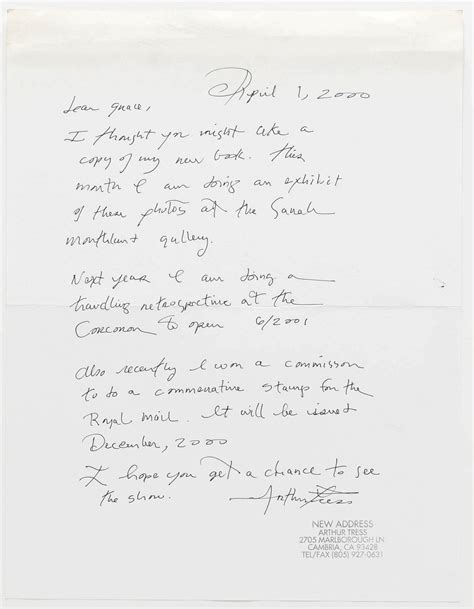 April 1, 2000
Dear Grace,
I thought you might like a
copy of my new book. This
month I am doing an exhibit
of these photos at the Sarah
Morthland gallery.
Next year I am doing a
travelling retrospective at the
Corcoran to open 6/2001
Also recently I won a commisson
to do a commerative stamps for the
Royal Mail. It will be issued
December, 2000
I hope you get a chance to see
the show. Arthur Tress
NEW ADDRESS
ARTHUR TRESS
2705 MARLBOROUGH LN.
CAMBRIA, CA 93428
TEL/FAX (805) 927-0631